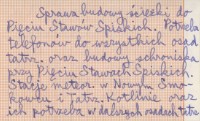 Sprawa budowy ścieżki do
Pięciu Stawów Spiskich. Potrzeba
telefonów do wszystkich osad
tatrz. oraz budowy schroniska
przy Pięciu Stawach Spiskich.
Stacje meteor. w Nowym Smo-
kowcu i Tatrz. Kotlinie oraz
ich potrzeba w dalszych osadach tatrz.